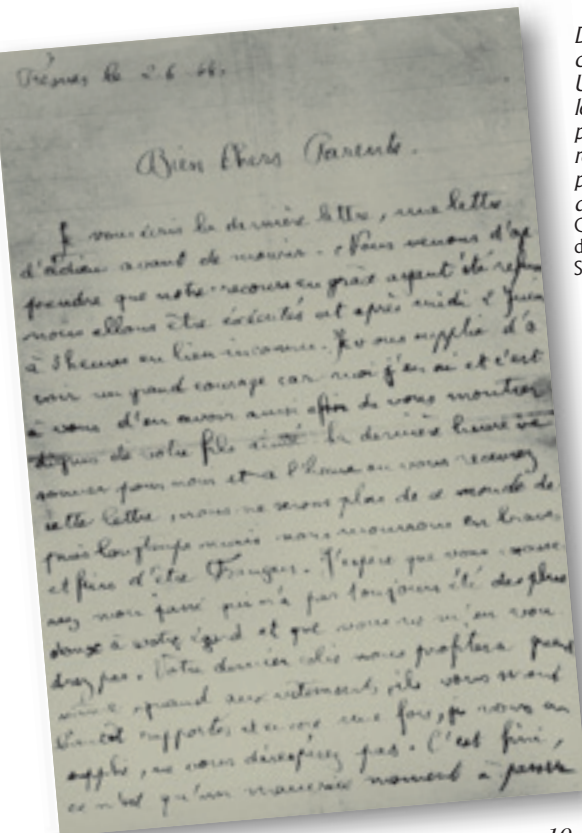 Fresnes le 2.6.
Bien Chers Parents.
Je vous écris la dernière lettre, une lettre
d'adieu avant de mourir. Nous venons d'ap
prendre que notre recours en grâce ayant été refusé
nous allons être éxécutés cet après midi 2 Juin
à 3 heures en lieu inconnu. Je vous supplie d'a
voir un grand courage car moi j'en ai et c'est
à vous d'en avoir aussi afin de vous montrer
dignes de votre fils la dernière heure va
sonner pour nous et à l'heure où vous recevrez
cette lettre, nous ne serons plus de ce monde de
puis longtemps mais nous mourrons en braves
et fiers d'être Français. J'espère que vous
mon passé qui n'a pas toujours été des plus
doux à votre égard et que vous ne m'en vou
drez pas. Votre dernier colis nous profitera quand
même, quand aux vêtements, ils vous seront
bientôt rapportés et encore une fois, je vous en
supplie, ne vous désespérez pas. C'est fini,
ce n'est qu'un mauvais moment à passer